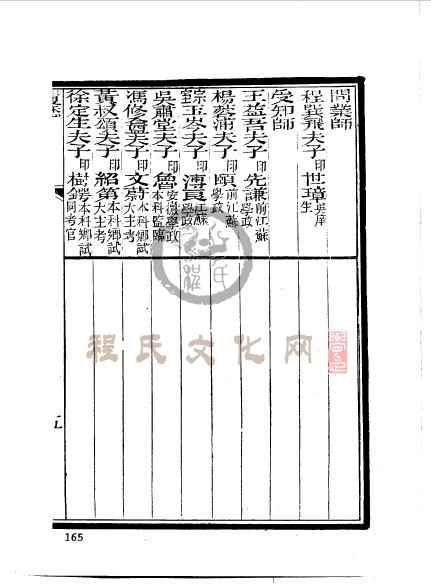 問業師
程巽飛夫子印世璋吳庠生
受知師
王益吾夫子印先謙前江蘇學政
楊蓉浦夫子印頤前江蘇學政
玉岑夫子印溥良江蘇學政
吳肅堂夫子印魯安徽學政本科監臨
馮修盦夫子印文蔚本科鄉試大主考
黃叔頌夫子印紹第本科鄉試大主考
徐定生夫子印樹鍔本科鄉試同考官
程氏文化网
165